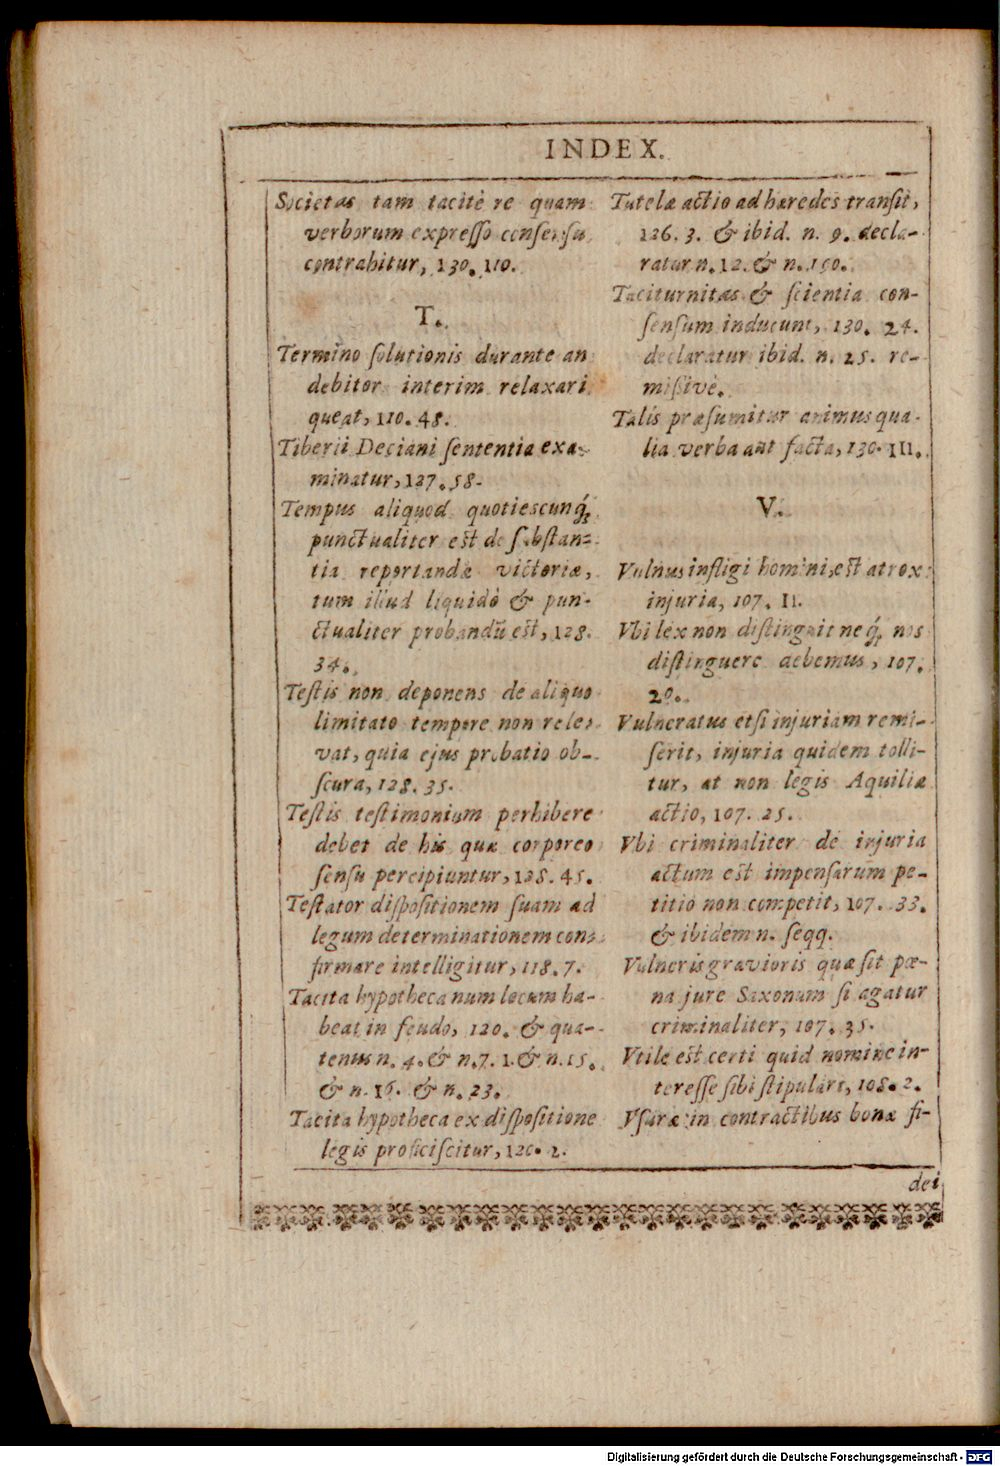 INDEX.
Societas tam tacitè re quam
verborum expresso consensu
contrahitur, 130. 110.
T.
Termino solutionis durante an
debitor interim relaxari
queat, 110. 48.
Tiberii Deciani sententia exa-
minatur, 127. 58.
Tempus aliquod quotiescunq́;
punctualiter est de substan-
tia reportandæ victoriæ,
tum illud liquidò & pun-
ctualiter probandũ est, 128.
34.
Testis non deponens de aliquo
limitato tempore non rele-
vat, quia ejus probatio ob-
scura, 128. 35.
Testis testimonium perhibere
debet de his quæ corporeo
sensu percipiuntur, 128. 45.
Testator dispositionem suam ad
legum determinationem con-
firmare intelligitur, 118. 7.
Tacita hypotheca num locum ha-
beat in feudo, 120. & qua-
tenus n. 4. & n. 7. 1. & n. 15.
& n. 16. & n. 23.
Tacita hypotheca ex dispositione
legis proficiscitur, 120. 2.
Tutelæ actio ad hæredes transit,
126. 3. & ibid. n. 9. decla-
ratur n. 12. & n. 150.
Taciturnitas & scientia con-
sensum inducunt, 130. 24.
declaratur ibid. n. 25. re-
missivè.
Talis præsumitur animus qua-
lia verba aut facta, 130. 111.
V.
Vulnus infligi homini, est atrox
injuria, 107. 11.
Vbi lex non distinguit neq́; nos
distinguere debemus, 107.
20.
Vulneratus etsi injuriam remi-
serit, injuria quidem tolli-
tur, at non legis Aquiliæ
actio, 107. 25.
Vbi criminaliter de injuria
actum est impensarum pe-
titio non competit, 107. 33.
& ibidem n. seqq.
Vulneris gravioris quæ sit pœ-
na jure Saxonum si agatur
criminaliter, 107. 35.
Vtile est certi quid nomine in-
teresse sibi stipulari, 108. 2.
Vsuræ in contractibus bonæ fi-
dei
Digitalisierung gefördert durch die Deutsche Forschungsgemeinschaft - DFG